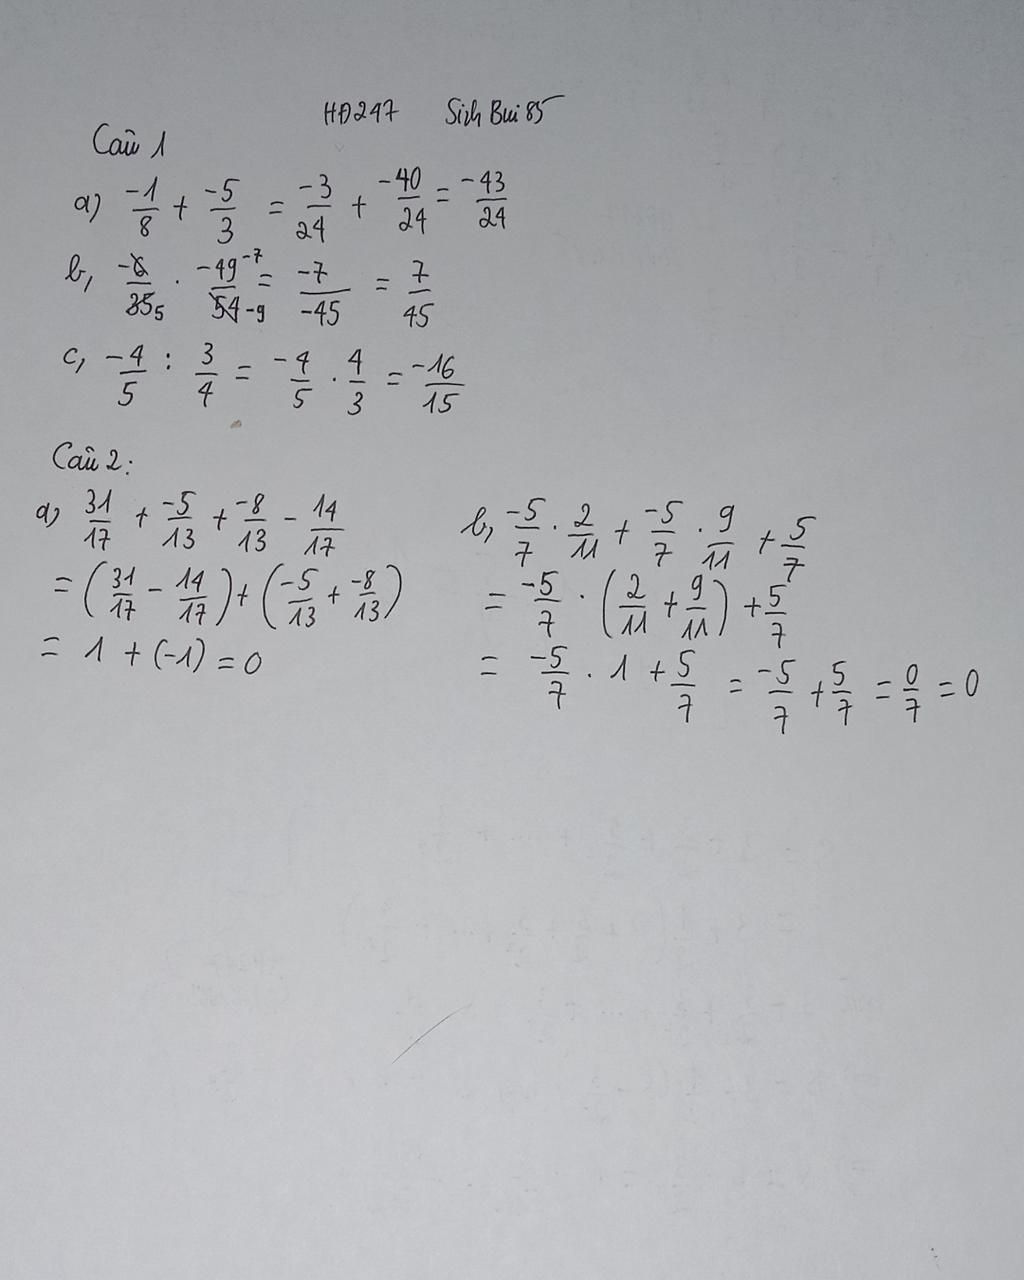 HĐ247 Sizh Bui 85
Câu 1
a) -1/8 + -5/3 = -3/24 + -40/24 = -43/24
b, -6/35 5 . -49 -7/54 -9 = -7/-45 = 7/45
c, -4/5 : 3/4 = -4/5 . 4/3 = -16/15
Câu 2:
a, 31/17 + -5/13 + -8/13 - 14/17
= (31/17 - 14/17) + (-5/13 + -8/13)
= 1 + (-1) = 0
b, -5/7 . 2/11 + -5/7 . 9/11 + 5/7
= -5/7 . (2/11 + 9/11) + 5/7
= -5/7 . 1 + 5/7 = -5/7 + 5/7 = 0/7 = 0